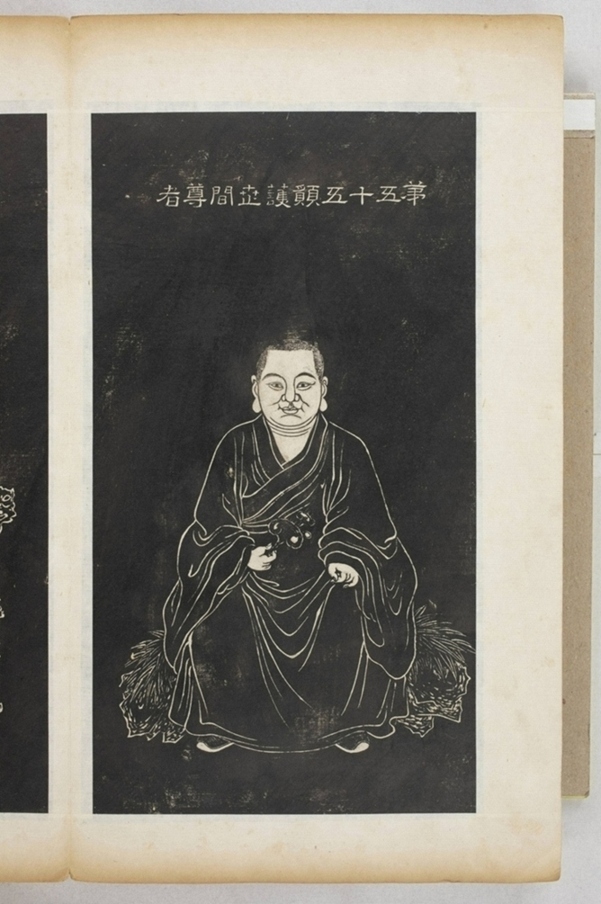 苐五十五願護世間尊者